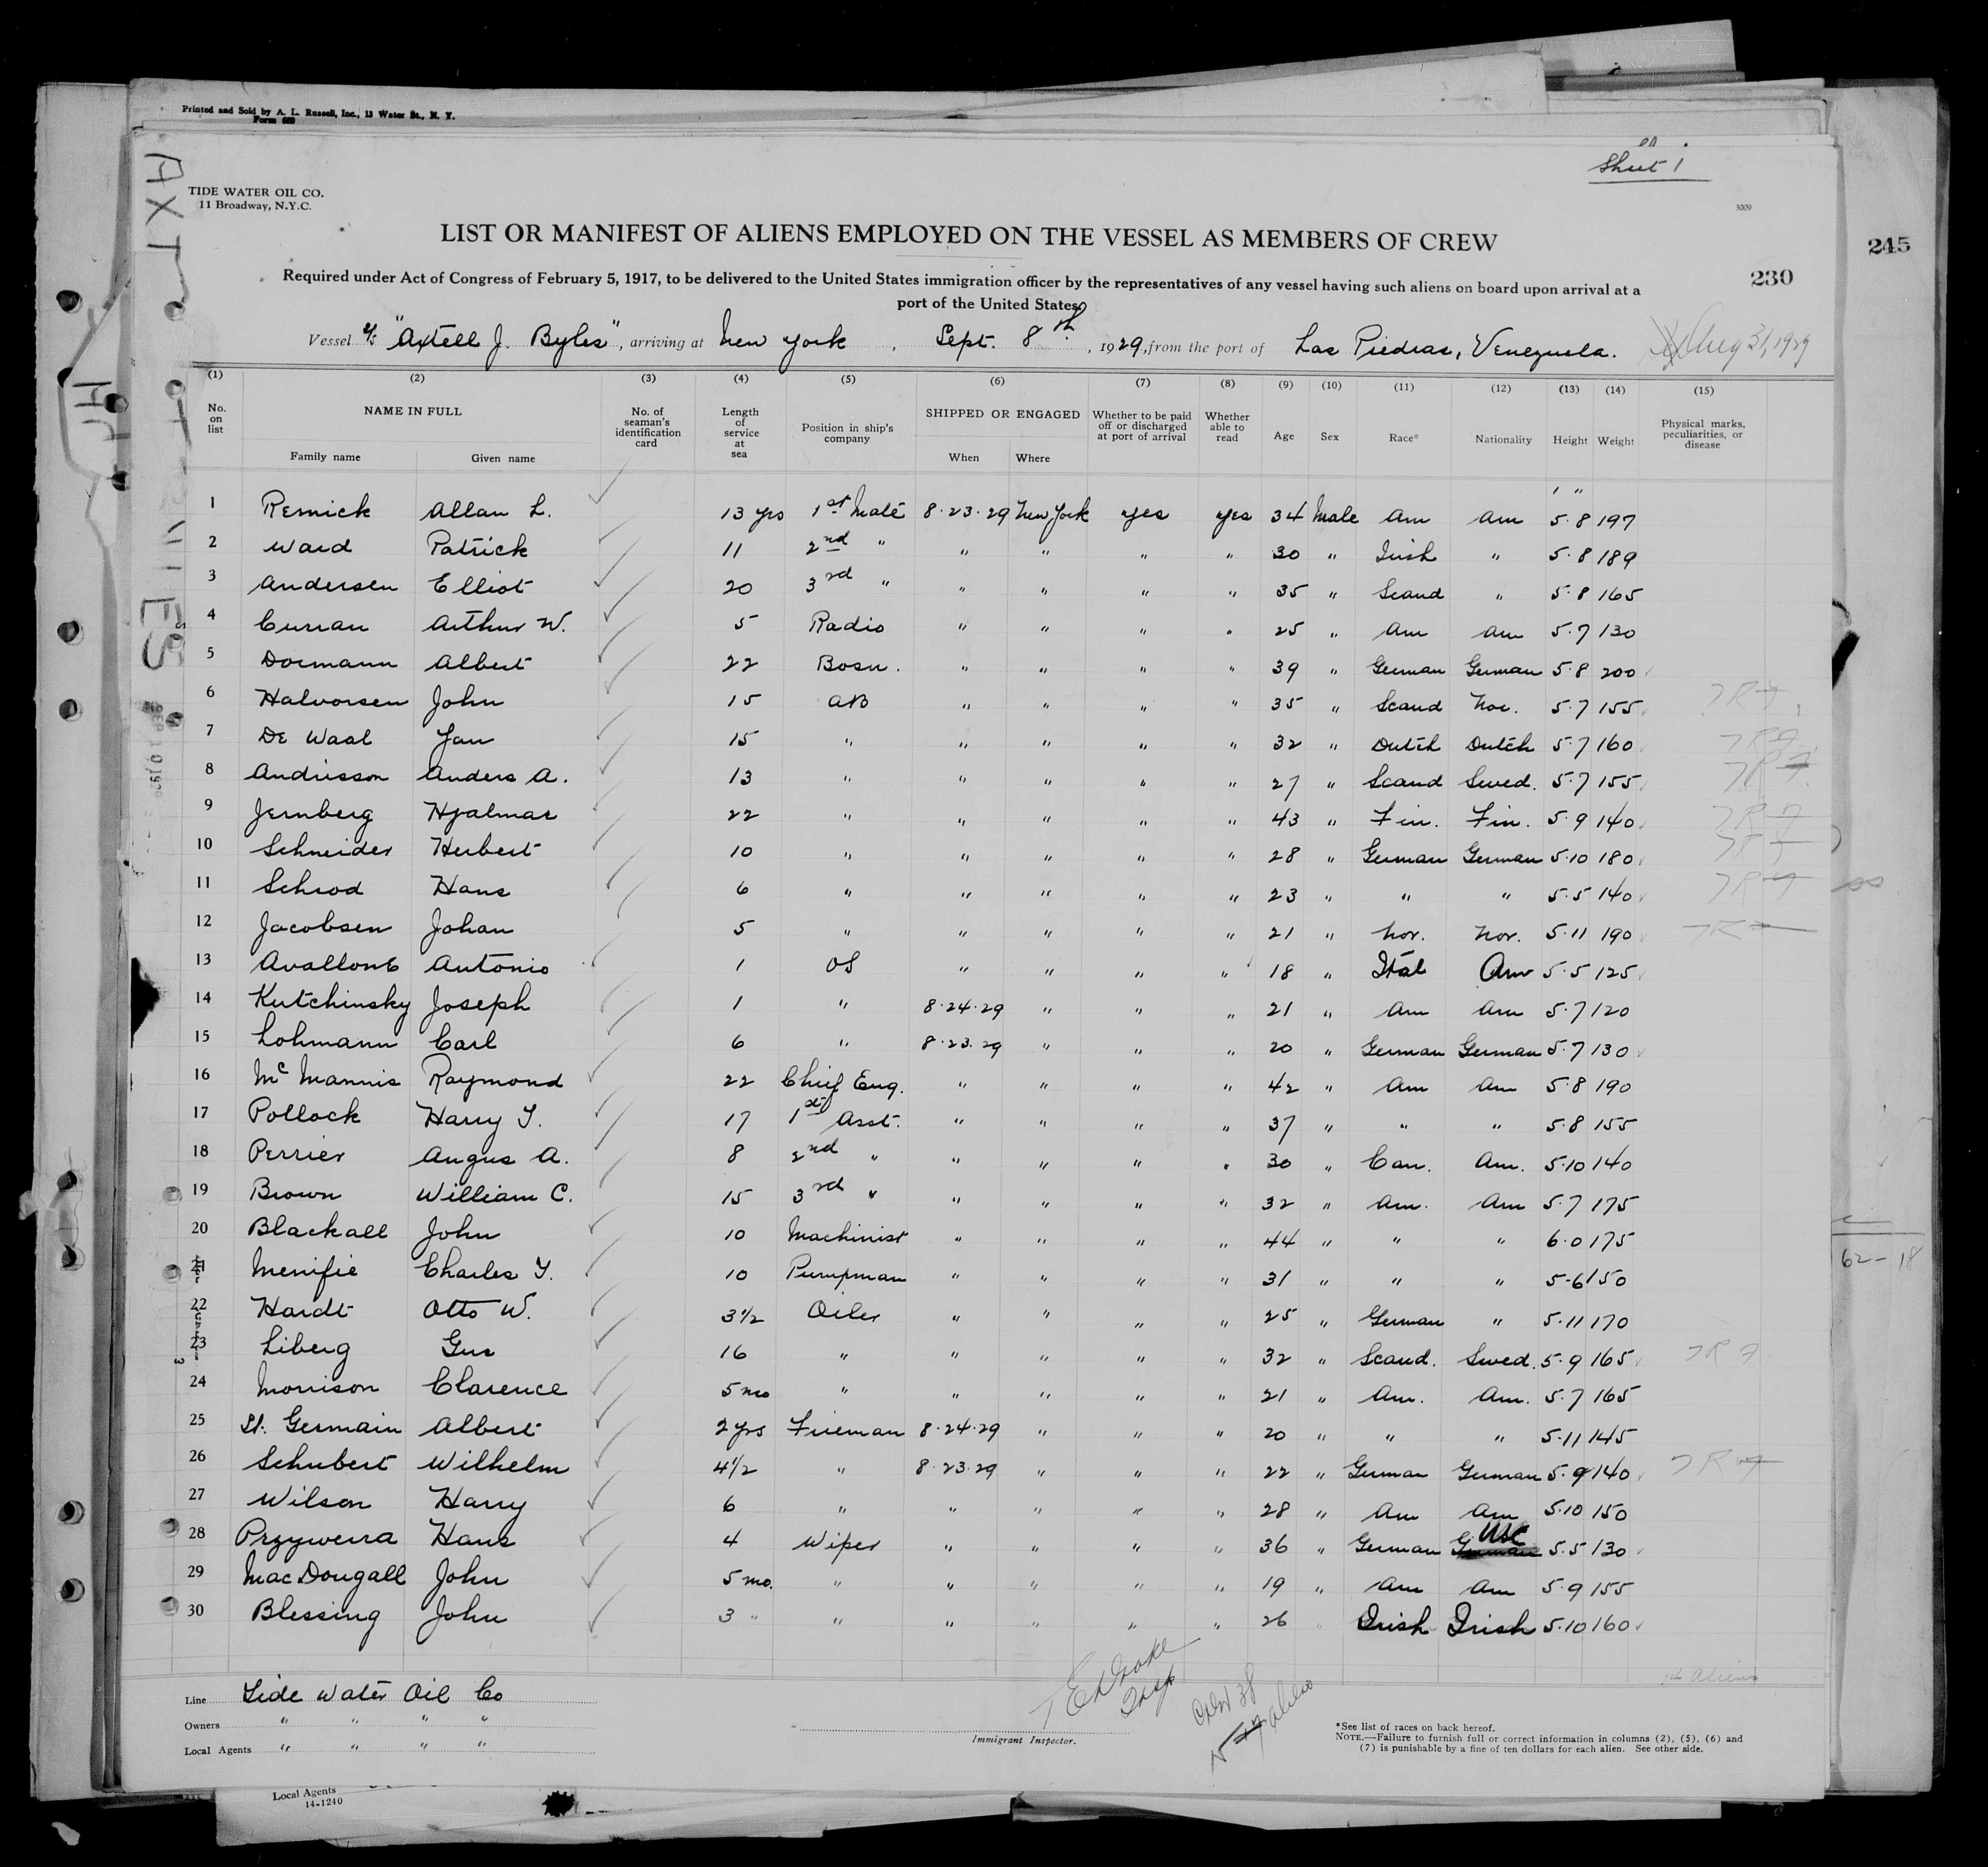 Printed and Sold by A. L. Russell, Inc., 13 Water St., N. Y.
Form 689
Sheet 1
TIDE WATER OIL CO.
11 Broadway, N.Y.C.
3009
LIST OR MANIFEST OF ALIENS EMPLOYED ON THE VESSEL AS MEMBERS OF CREW
245
230
Required under Act of Congress of February 5, 1917, to be delivered to the United States immigration officer by the representatives of any vessel having such aliens on board upon arrival at a
port of the United States
Vessel S/S "Axtell J. Byles", arriving at New York, Sept. 8th, 1929, from the port of Las Piedras, Venezuela. Aug 31, 1929
(1) (2) (3) (4) (5) (6) (7) (8) (9) (10) (11) (12) (13) (14) (15)
No. on list NAME IN FULL No. of seaman's identification card Length of service at sea Position in ship's company SHIPPED OR ENGAGED Whether to be paid off or discharged at port of arrival Whether able to read Age Sex Race* Nationality Height Weight Physical marks, peculiarities, or disease
Family name Given name When Where
1 Remick Allan L. 13 yrs 1st Mate 8.23.29 New York yes yes 34 Male Am Am 5.8 197
2 Ward Patrick 11 2nd " " " " " 30 " Irish " 5.8 189
3 Andersen Elliot 20 3rd " " " " " 35 " Scand " 5.8 165
4 Curran Arthur W. 5 Radio " " " " 25 " Am Am 5.7 130
5 Dormann Albert 22 Bosn. " " " " 39 " German German 5.8 200
6 Halvorsen John 15 AB " " " " 35 " Scand Nor. 5.7 155
7 De Waal Jan 15 " " " " " 32 " Dutch Dutch 5.7 160
8 Andrisson Anders A. 13 " " " " " 27 " Scand Swed. 5.7 155
9 Jernberg Hjalmar 22 " " " " " 43 " Fin. Fin. 5.9 140
10 Schneider Herbert 10 " " " " " 28 " German German 5.10 180
11 Schrod Hans 6 " " " " " 23 " " " 5.5 140
12 Jacobsen Johan 5 " " " " " 21 " Nor. Nor. 5.11 190
13 Avallone Antonio 1 OS " " " " 18 " Ital Am 5.5 125
14 Kutchinsky Joseph 1 " 8.24.29 " " " 21 " Am Am 5.7 120
15 Lohmann Carl 6 " 8.23.29 " " " 20 " German German 5.7 130
16 McMannis Raymond 22 Chief Eng. " " " " 42 " Am Am 5.8 190
17 Pollock Harry T. 17 1st Asst. " " " " 37 " " " 5.8 155
18 Perrier Angus A. 8 2nd " " " " " 30 " Can. Am. 5.10 140
19 Brown William C. 15 3rd " " " " " 32 " Am. Am 5.7 175
20 Blackall John 10 Machinist " " " " 44 " " " 6.0 175
21 Menifie Charles T. 10 Pumpman " " " " 31 " " " 5-6 150
22 Hardt Otto W. 3 1/2 Oiler " " " " 25 " German " 5.11 170
23 Liberg Gus 16 " " " " " 32 " Scand. Swed. 5.9 165
24 Morrison Clarence 5 mo " " " " " 21 " Am. Am. 5.7 165
25 St. Germain Albert 2 yrs Fireman 8.24.29 " " " 20 " " " 5.11 145
26 Schubert Wilhelm 4 1/2 " 8.23.29 " " " 22 " German German 5.9 140
27 Wilson Harry 6 " " " " " 28 " Am Am 5.10 150
28 Przywerra Hans 4 Wiper " " " " 36 " German German USC 5.5 130
29 MacDougall John 5 mo. " " " " " 19 " Am Am 5.9 155
30 Blessing John 3 " " " " " " 26 " Irish Irish 5.10 160
14 aliens
Line Tide Water Oil Co
Owners " " " "
Local Agents " " " "
Insp
Crew 38
aliens
Immigrant Inspector.
*See list of races on back hereof.
NOTE.—Failure to furnish full or correct information in columns (2), (5), (6) and
(7) is punishable by a fine of ten dollars for each alien. See other side.
Local Agents
14-1240
62-18